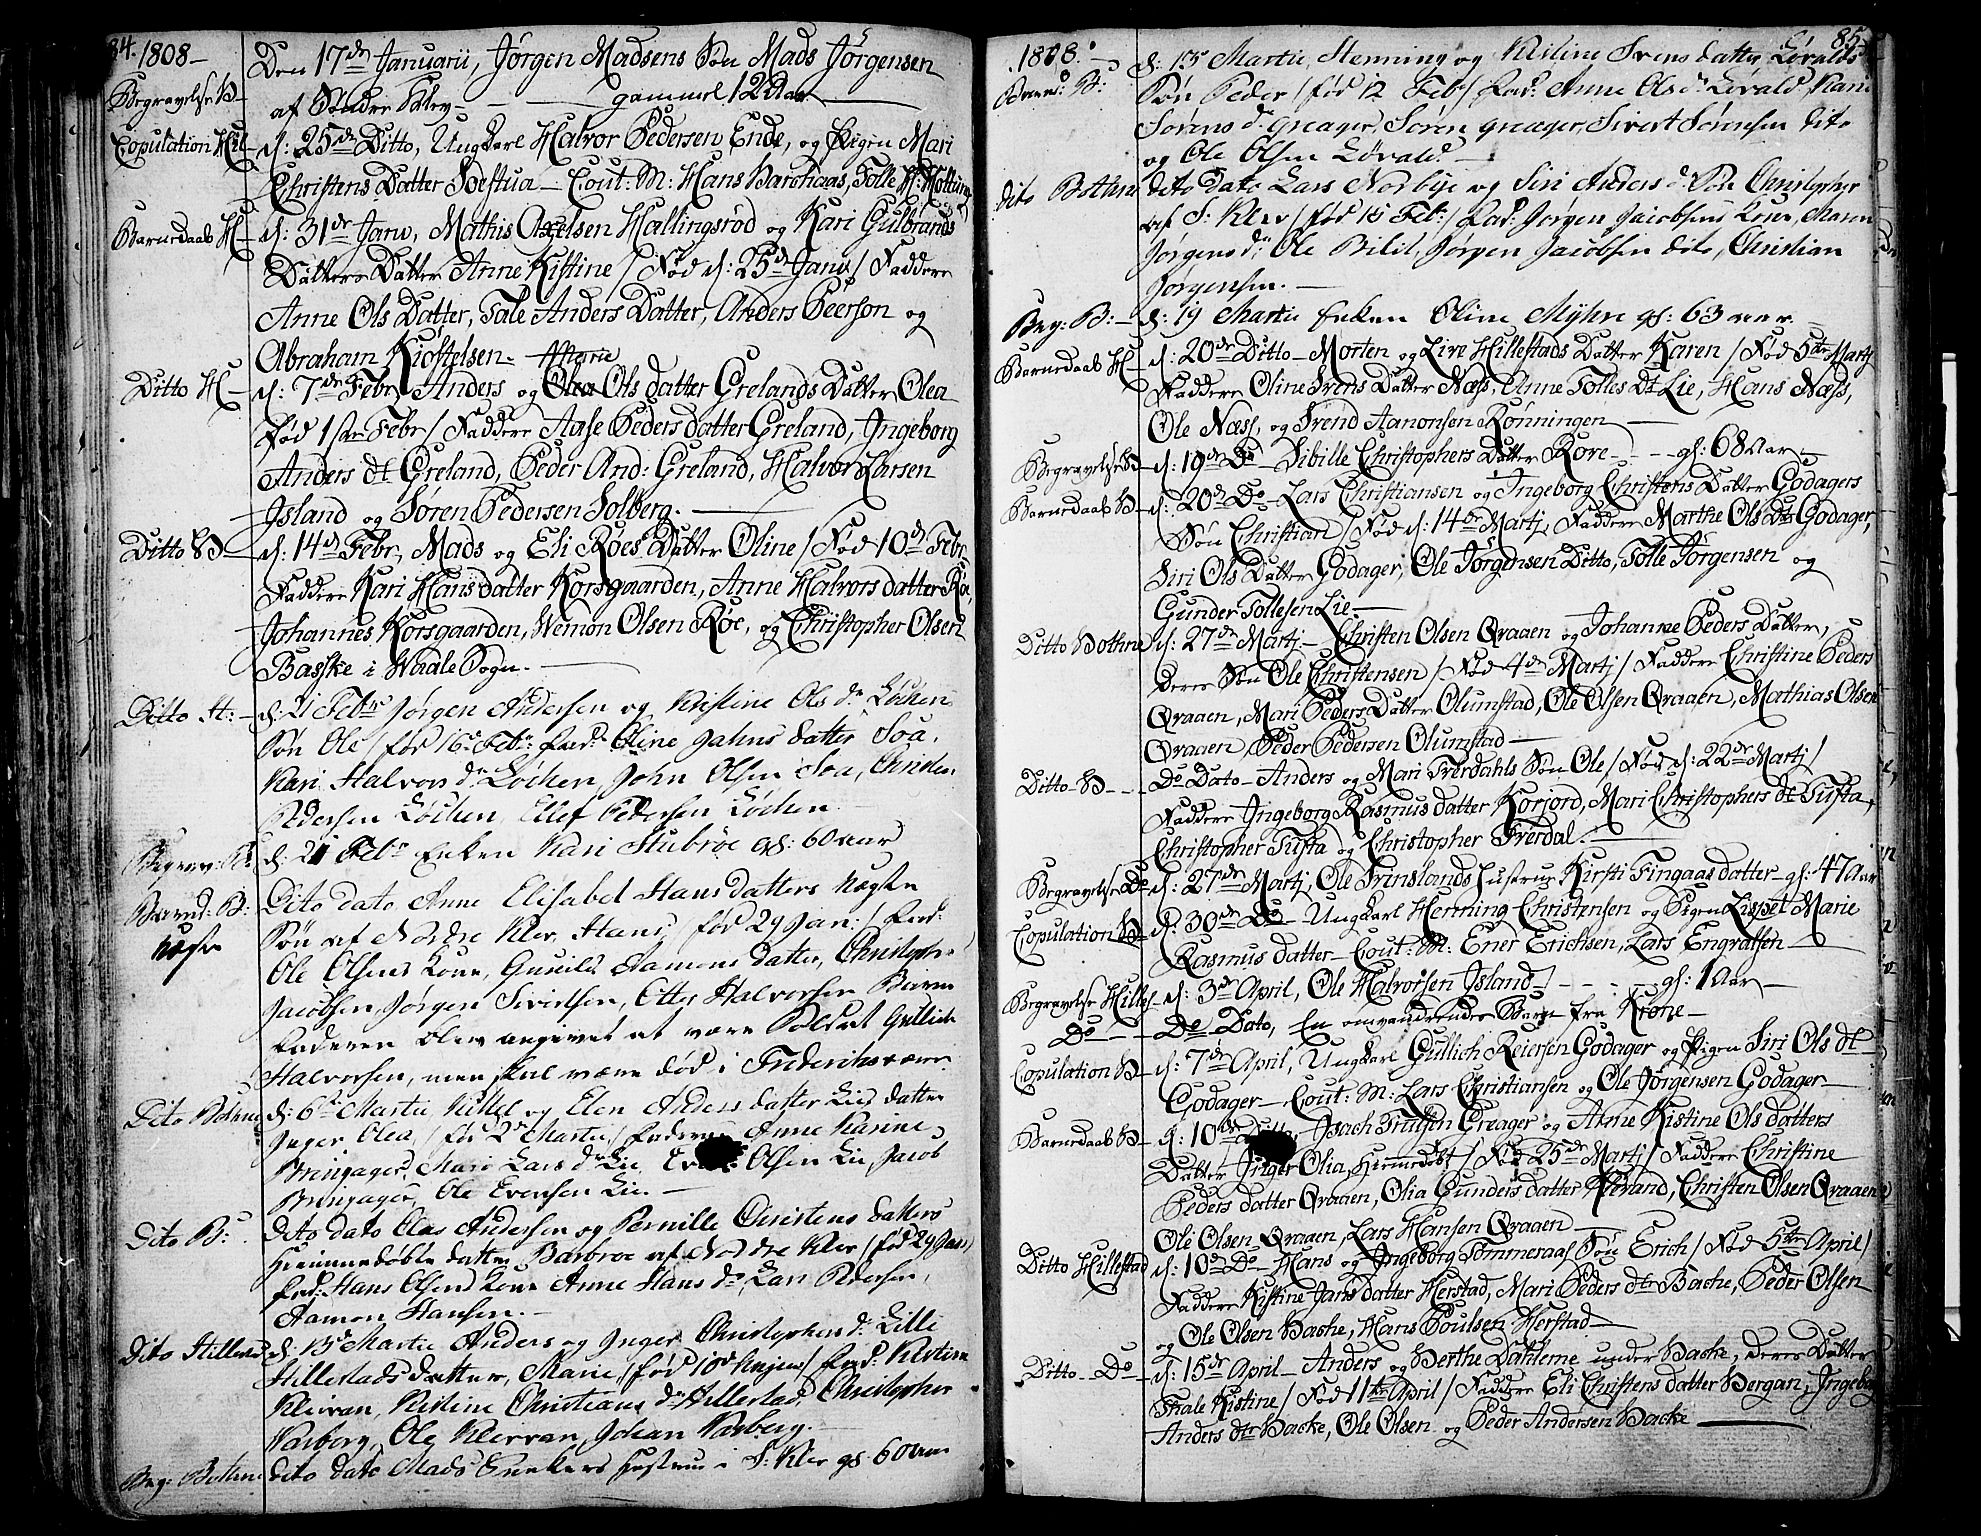 84. 1808
Den 17de Januarii, Jørgen Madsens Søn Mads Jørgensen
Begravelse B af Søndre Klev gammel 12 Aar
Copulation Hil d: 25de Ditto, Ungkarl Halvor Pedersen Ende, og Pigen Mari
Christens Datter Bestua Cout: M: Hans Barchaas, Tolle H:
Barnedaab H d: 31de Janv, Mathis Axelsen Hallingsrød og Kari Gulbrands
Datters Datter Anne Kistine / Fød d: 25de Janv / Faddere
Anne Ols Datter, Tale Anders Datter, Anders Peerson og
Abraham Kiostelsen Marie
Ditto H d: 7de Febr Anders og Olea Ols datter Grelands Datter Olea
Fød 1ste Febr / Faddere Aase Peders datter Greland, Ingeborg
Anders dt Greland, Peder And: Greland, Halvor Larsen
Island og Søren Pedersen Solberg.
Ditto B d: 14de Febr, Mads og Eli Røes Datter Oline / Fød 10de Febr
Faddere Kari Hans datter Korsgaarden, Anne Halvors datter Røe,
Johannes Korsgaarden, Wemon Olsen Røe, og Christopher Olsen
Basske i Waale Sogn.
Ditto H: d: 21 Febr Jørgen Andersen og Kristine Ols dr Løchen
Søn Ole / før 16 Feb: Fad: Oline Jahns datter Soa,
Kari Halvors dr Løchen, John Olsen Soa, Christen
Pedersen Løchen, Ellef Pedersen Løchen
Begrav: B: d: 21 Feb: Enken Kari Stubrøe gl: 60 aar
Barned: B: Dito dato Anne Elisabet Hans datters Uægte
Uægte Søn af Nordre Klev, Hans / før 29 Jan: / Fad:
Ole Olsens Kone, Gunild Aamons datter, Christopher
Jacobsen, Jørgen Sivertsen, Etter Halvorsen Barne
Faderen blev angivet at være Soldat Gullich
Halvorsen, men skal være død i Frederiksværn
Dito Bothne d: 6te Martii Kittel og Elen Anders datter Lie datter
Inger Olea / før 2 Martii / Fadere Anne Karine
Bringager, Mari Lars dr Lie, Even Olsen Lie, Jacob
Bringager, Ole Evensen Lie.
Dito B: Dito dato Claes Andersen og Pernille Christens datters
Hiemmedøbte datter Barbroe af Nordre Klev / før 29 Jan
Fad: Hans Olsens Kone Anne Hans dr, Lars Pedersen,
Aamon Hansen.
Dito Hillest d: 13 Martii Anders og Inger Christophers dr Lille
Hillestads datter, Marie / før 10 / Fad: Kistine
Kleivan, Kistine Christians dr Hillestad, Christopher
Varberg, Ole Klevan, Johan Varberg.
Beg: Bothn: Dito dato Mads Hustru i S: Klev gl 60 aar
85
1808. d: 13 Martii Henning og Kistine Svens datter Løvalds
Barned: B: Søn Peder / fød 12 Feb / Fad: Anne Ols dr Løvald, Kari
Sørens dr Greager, Søren Greager, Sivert Sørensen dito
og Ole Olsen Løvald.
Dito Bothne Dito dato Lars Norbye og Siri Anders dr Søn Christopher
af S: Klev / fød 15 Feb: / Fad: Jørgen Jacobsens Kone, Maren
Jørgensdr, Ole Bilit, Jørgen Jacobsen dito, Christian
Jørgensen.
Beg: B: d: 19 Martii Enken Oline Myhre gl: 63 aar.
Barnedaab H d: 20de Ditto Morten og Live Hillestads Datter Karen / Fød 5te Martj
Faddere Oline Svens Datter Næss, Anne Tolles dt Lie, Hans Næss,
Ole Næss, og Svend Aanonsen Rønningen
Begravelse B d: 19de Do Sibille Christophers Datter Røre gl: 68 Aar
Barnedaab B d: 20de Do Lars Christiansen og Ingeborg Christens Datter Godagers
Søn Christian / Fød d: 14de Martj, Faddere Marthe Ols Dt Godager,
Siri Ols Datter Godager, Ole Jørgensen Ditto, Tolle Jørgensen og
Gunder Tollesen Lie.
Ditto Bothne d: 27de Martj Christen Olsen Qvaaen og Johanne Peders Datter,
Deres Søn Ole Christensen / Fød 4de Martj / Faddere Christine Peders
Qvaaen, Mari Peders Datter Olumstad, Ole Olsen Qvaaen, Mathias Olsen
Qvaaen, Peder Pedersen Olumstad
Ditto B Do Dato Anders og Mari Frerdahls Søn Ole / Fød d: 22de Martj /
Faddere Ingeborg Rasmus datter Korjord, Mari Christophers dt Tufta,
Christopher Tufta og Christopher Frerdal.
Begravelse Do d: 27de Martj, Ole Trinslands Hustrue Kirsti Fingaas datter gl: 47 Aar
Copulation B d: 30de Do Ungkarl Henning Christensen og Pigen Lispet Marie
Rasmus datter Cout: M: Ener Erichsen, Lars Engralsen
Begravelse Hilles d: 3de April, Ole Halvorsen Island gl: 1 Aar
Do Do Dato, En omvandrendes Barn fra Krone
Copulation B d: 7de April, Ungkarl Gullich Reiersen Godager og Pigen Siri Ols dt
Godager Cout: M: Lars Christiansen og Ole Jørgensen Godager
Barnedaab B d: 10de Ditto, Isach Trulsen Greager og Anne Kistine Ols datters
Datter Inger Olia, Hiemmedøbt / Fød 25de Martj / Faddere Christine
Peders datter Qvaaen, Olia Gunders datter Strand, Christen Olsen Qvaaen
Ole Olsen Qvaaen, Lars Hansen Qvaaen
Ditto Hillestad d: 10de Do Hans og Ingeborg Tommeraas Søn Erich / Fød 5te April /
Faddere Kistine Jans datter Herstad, Mari Peders dtr Bache, Peder Olsen
og Ole Olsen Bache, Hans Poulsen Herstad
Ditto Do d: 15de April Anders og Berthe Dahlerne under Bache, deres Datter
Thale Kistine / Fød 11te April / Faddere Eli Christens datter Bergan, Ingeborg
Anders dtr Bache, Ole Olsen og Peder Andersen Bache